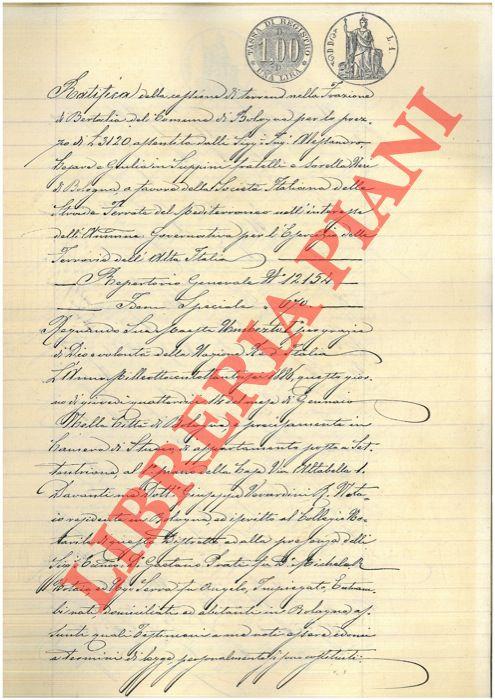 TASSA DI REGISTRO
1,00
UNA LIRA
L. 1
Ratifica della cessione di terreno nella Frazione
di Bertalia del Comune di Bologna per lo prez-
zo di £ 3120 assentita dalli Sigg. Alessandro
Cesare e Giulia in fratelli e sorella
di Bologna, a favore della Società Italiana delle
Strade Ferrate del Mediterraneo nell'interesse
dell'Amm.ne Governativa per l'Esercizio delle
Ferrovie dell'Alta Italia
Repertorio Generale N° 12154
Speciale " 670
Regnando Sua Maestà Umberto I° per grazia
di Dio e volontà della Nazione Re d'Italia
L'Anno Milleottocentottantasei 1886, questo gior-
no di giovedì quattordici del mese di Gennaio
Nella Città di Bologna e precisamente in
Camera di Studio di appartamento posto a Set-
tentrione, al piano della Casa Via Altabella 1.
Davanti me Dott. Giuseppe Verardini Nota-
io residente in Bologna ed iscritto al Collegio No-
tarile di questo Distretto e alla presenza delli
Sigg. Gaetano Prati fu Michele
ed Serra fu Angelo, Impiegato, Entram-
bi nati, domiciliati ed abitanti in Bologna as-
sunti quali Testimoni a me noti ed idonei
a termini di legge personalmente si sono costituiti:
LIBRERIA PIANI